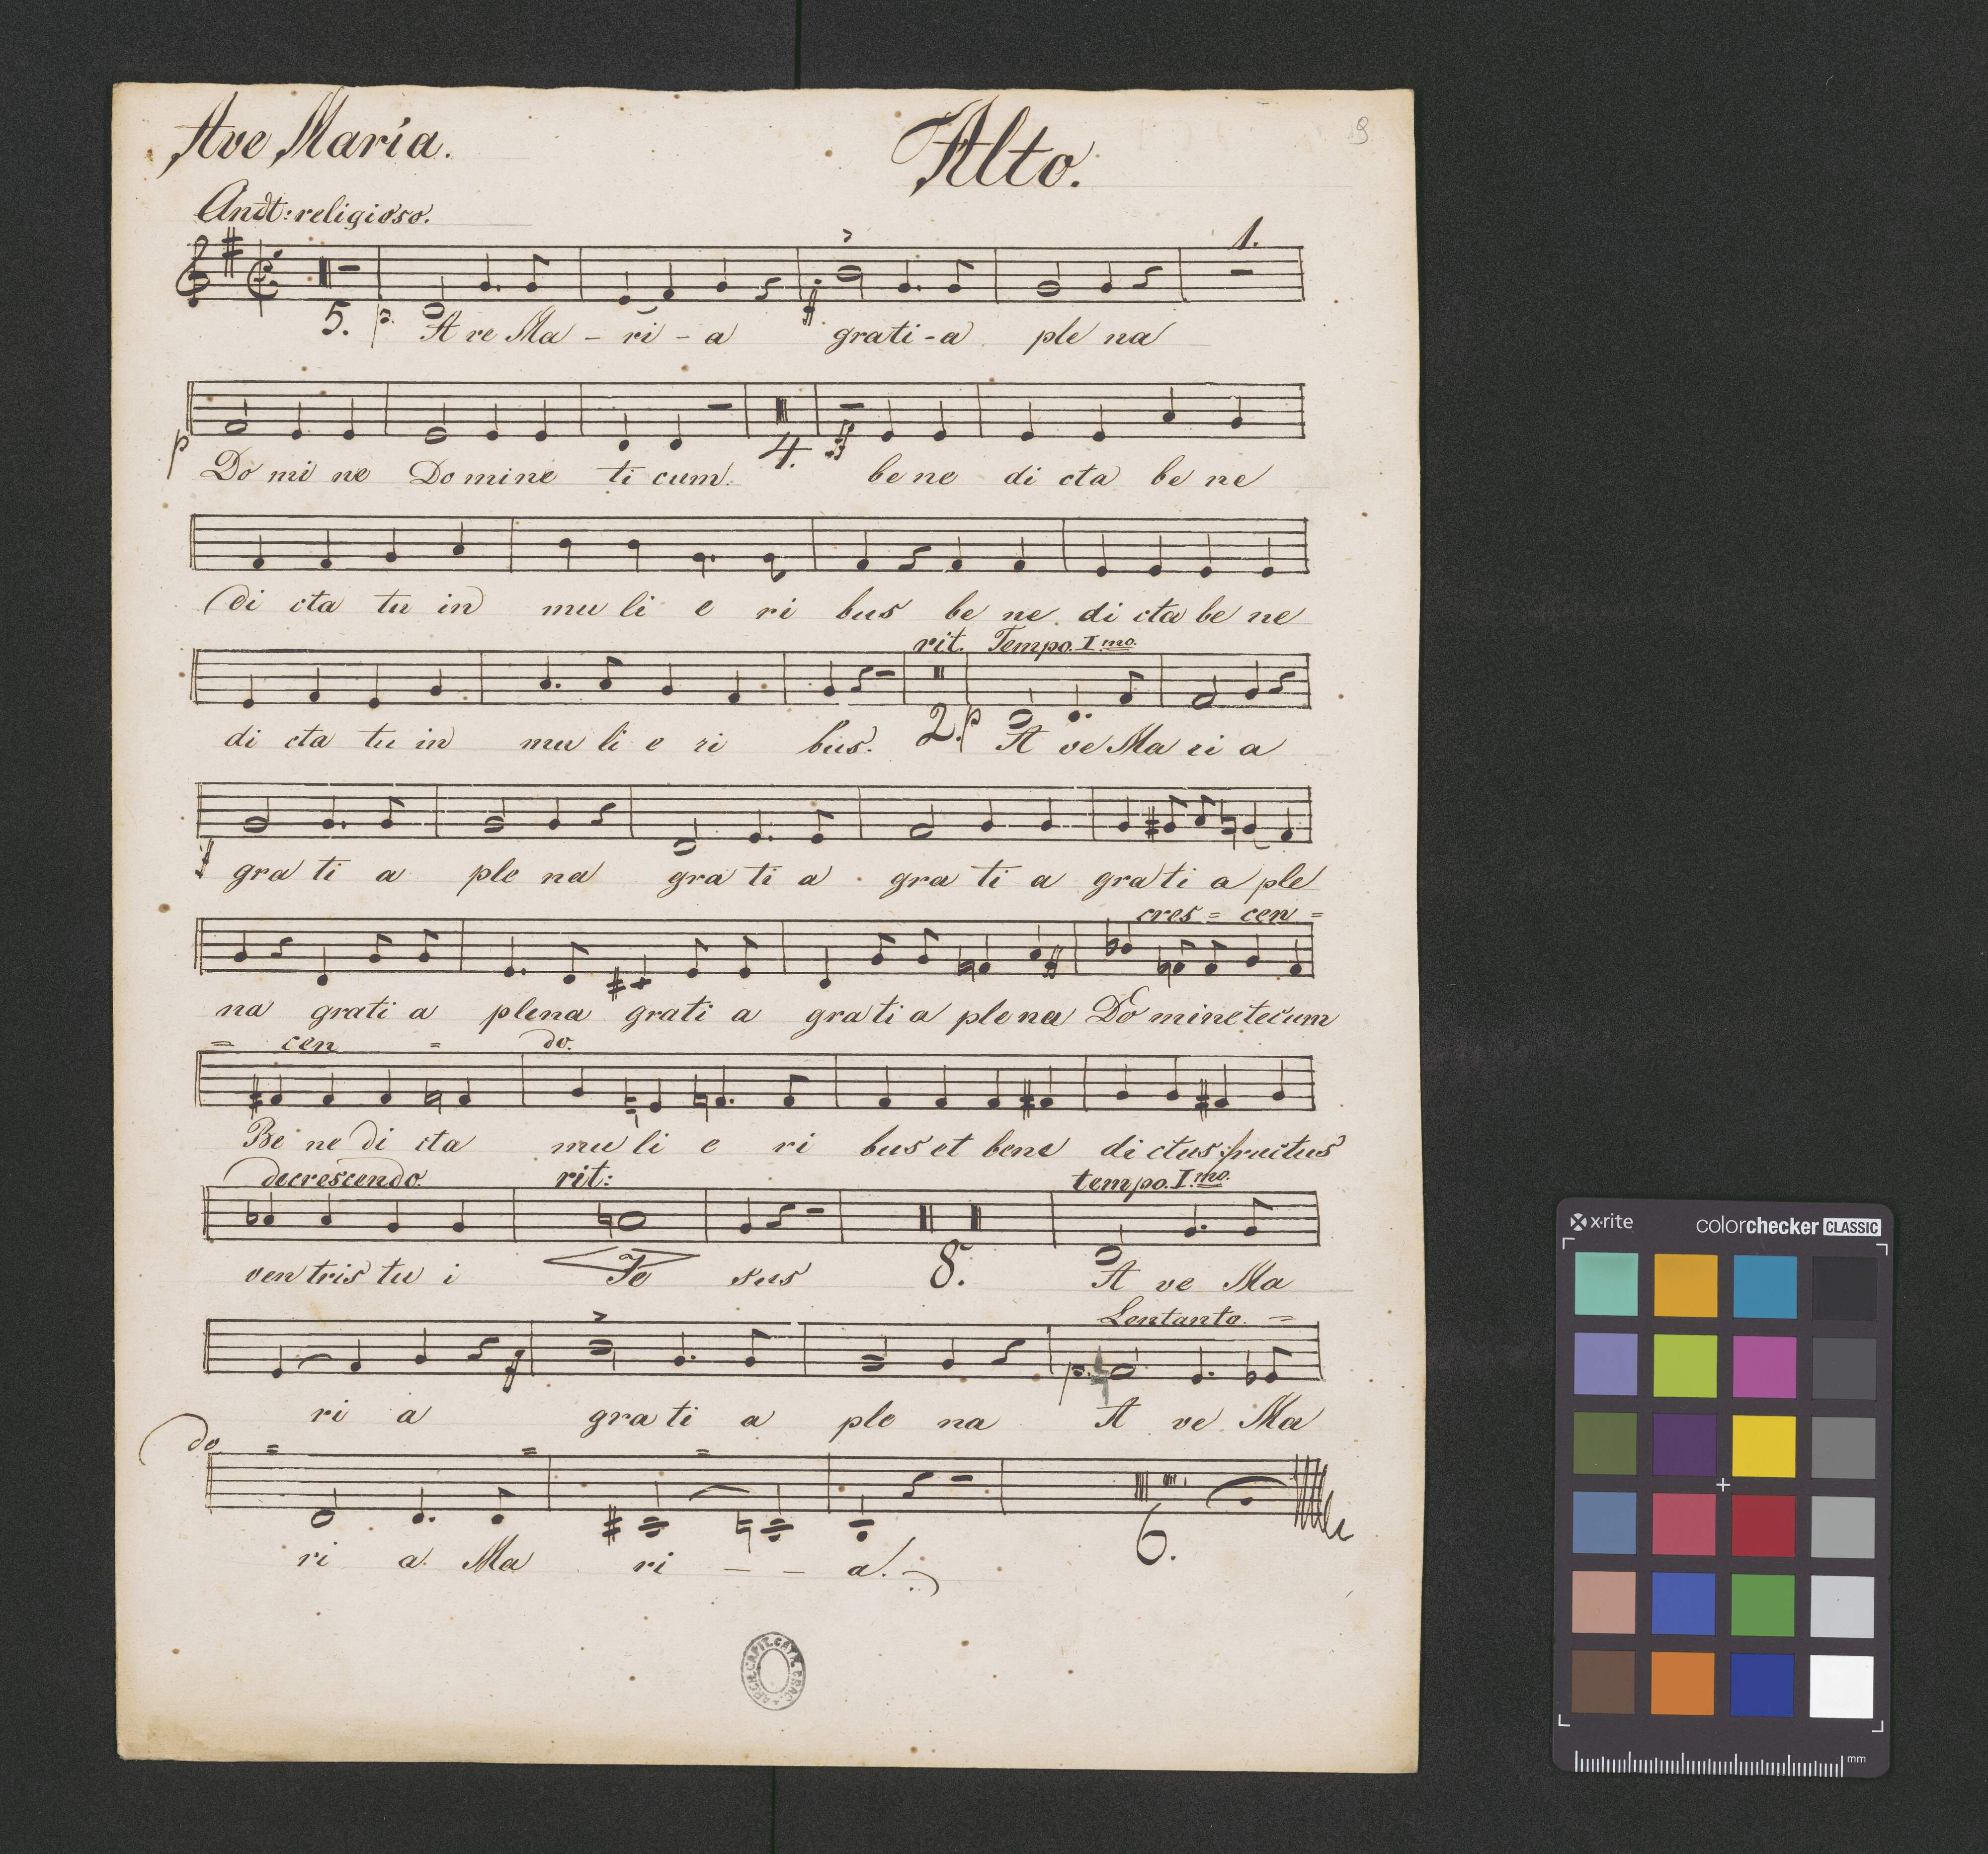 Ave Maria.
Alto.
9
Andt: religioso.
1.
5. p.
f
A ve Ma - ri - a grati - a ple na
p
4.
ff
Do mi ne Do mine ti cum. be ne di cta be ne
di cta tu in mu li e ri bus be ne. di cta be ne
rit. Tempo. I mo.
2. p
di cta tu in mu li e ri bus. A ve Ma ri a
f
gra ti a ple na gra ti a gra ti a gra ti a ple
cres = cen =
ff
na grati a plena grati a gra ti a plena Do minetecum
= cen = do.
Be ne di cta mu li e ri bus et bene dictus fructus
decrescendo. rit: tempo. I mo.
8.
ven tris tu i Je sus A ve Ma
Lontanto =
ff
p.
ri a gra ti a ple na A ve Ma
do = = =
6.
ri a. Ma ri - - a.
ARCH. CAPIT. CATH. CRAC.
x-rite
colorchecker CLASSIC
mm